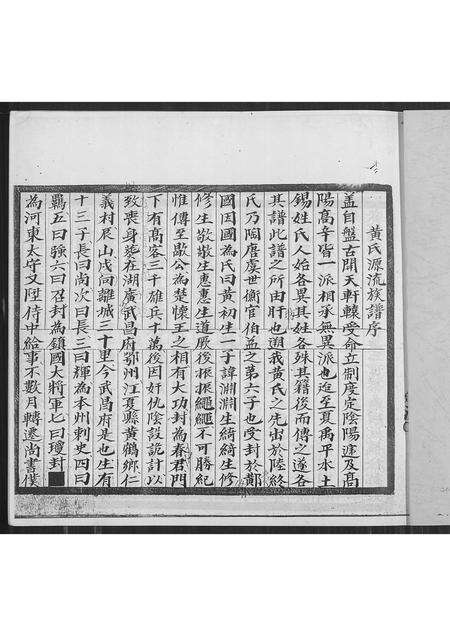 黃氏源流族譜序
盖自盤古開天軒轅受命立制度定陰陽迨及高
陽高辛皆一派相承無異派也迨至夏禹平水土
錫姓氏人始各異其姓各殊其籍後而傳之遂各
其譜此譜之所由肝也廼我黃氏之先出於陸終
氏乃陶唐虞世衡官伯益之第六子也受封於鄖
國因國為氏曰黃初生一子諱渊渊生綺綺生修
修生敬敬生應應生道厥後振振繩繩不可勝紀
惟傳至歇公為楚懷王之相有大功封為春君門
下有髙客三千雄兵十萬後因奸仇陰設詭計以
致喪身塟在湖廣武昌府鄂州江夏縣黃鶴鄉仁
義村艮山戌向離城三十里今武昌府是也生有
十三子長曰尚次曰長三曰輝為本州刺史四曰
鼎五曰強六曰召封為鎮國大將軍七曰瓊封
為河東太守又陞侍中給事不數月轉遷尚書僕